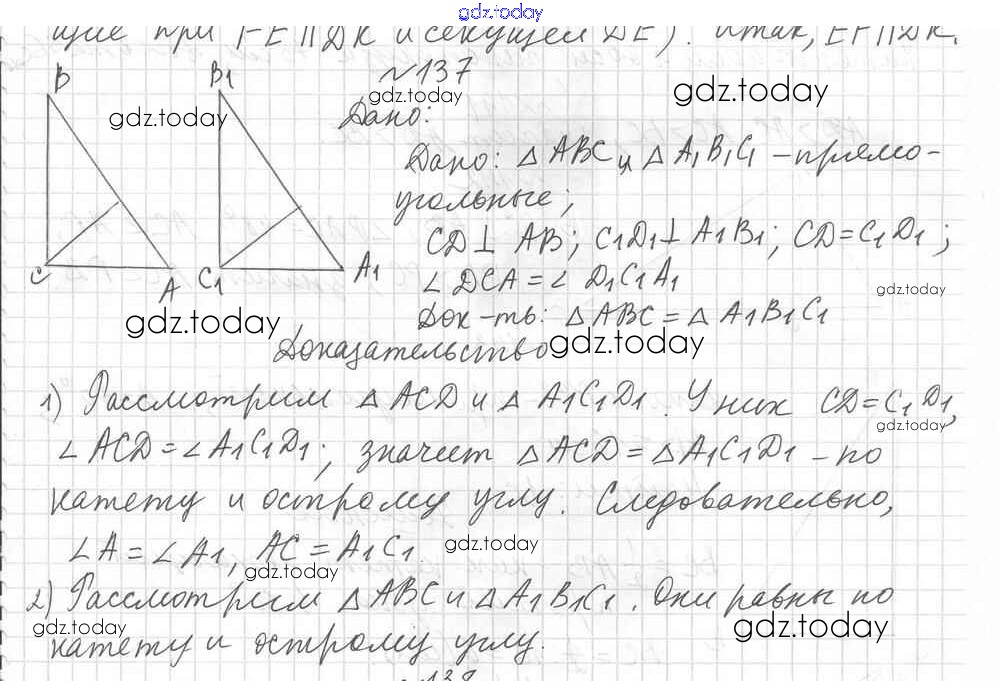 gdz.today
щие при FE || DK и секущей DE). Итак, EF || DK.
№137
B
B1
gdz.today
gdz.today
gdz.today
Дано:
Дано: △ ABC и △ A1B1C1 – прямо-
угольные;
CD ⊥ AB; C1D1 ⊥ A1B1; CD = C1D1;
C
A
C1
A1
∠ DCA = ∠ D1C1A1
gdz.today
Док-ть: △ ABC = △ A1B1C1
gdz.today
Доказательство
gdz.today
1) Рассмотрим △ ACD и △ A1C1D1. У них CD = C1D1,
gdz.today
∠ ACD = ∠ A1C1D1; значит △ ACD = △ A1C1D1 – по
катету и острому углу. Следовательно,
∠ A = ∠ A1, AC = A1C1
gdz.today
gdz.today
2) Рассмотрим △ ABC и △ A1B1C1. Они равны по
gdz.today
gdz.today
катету и острому углу.
138